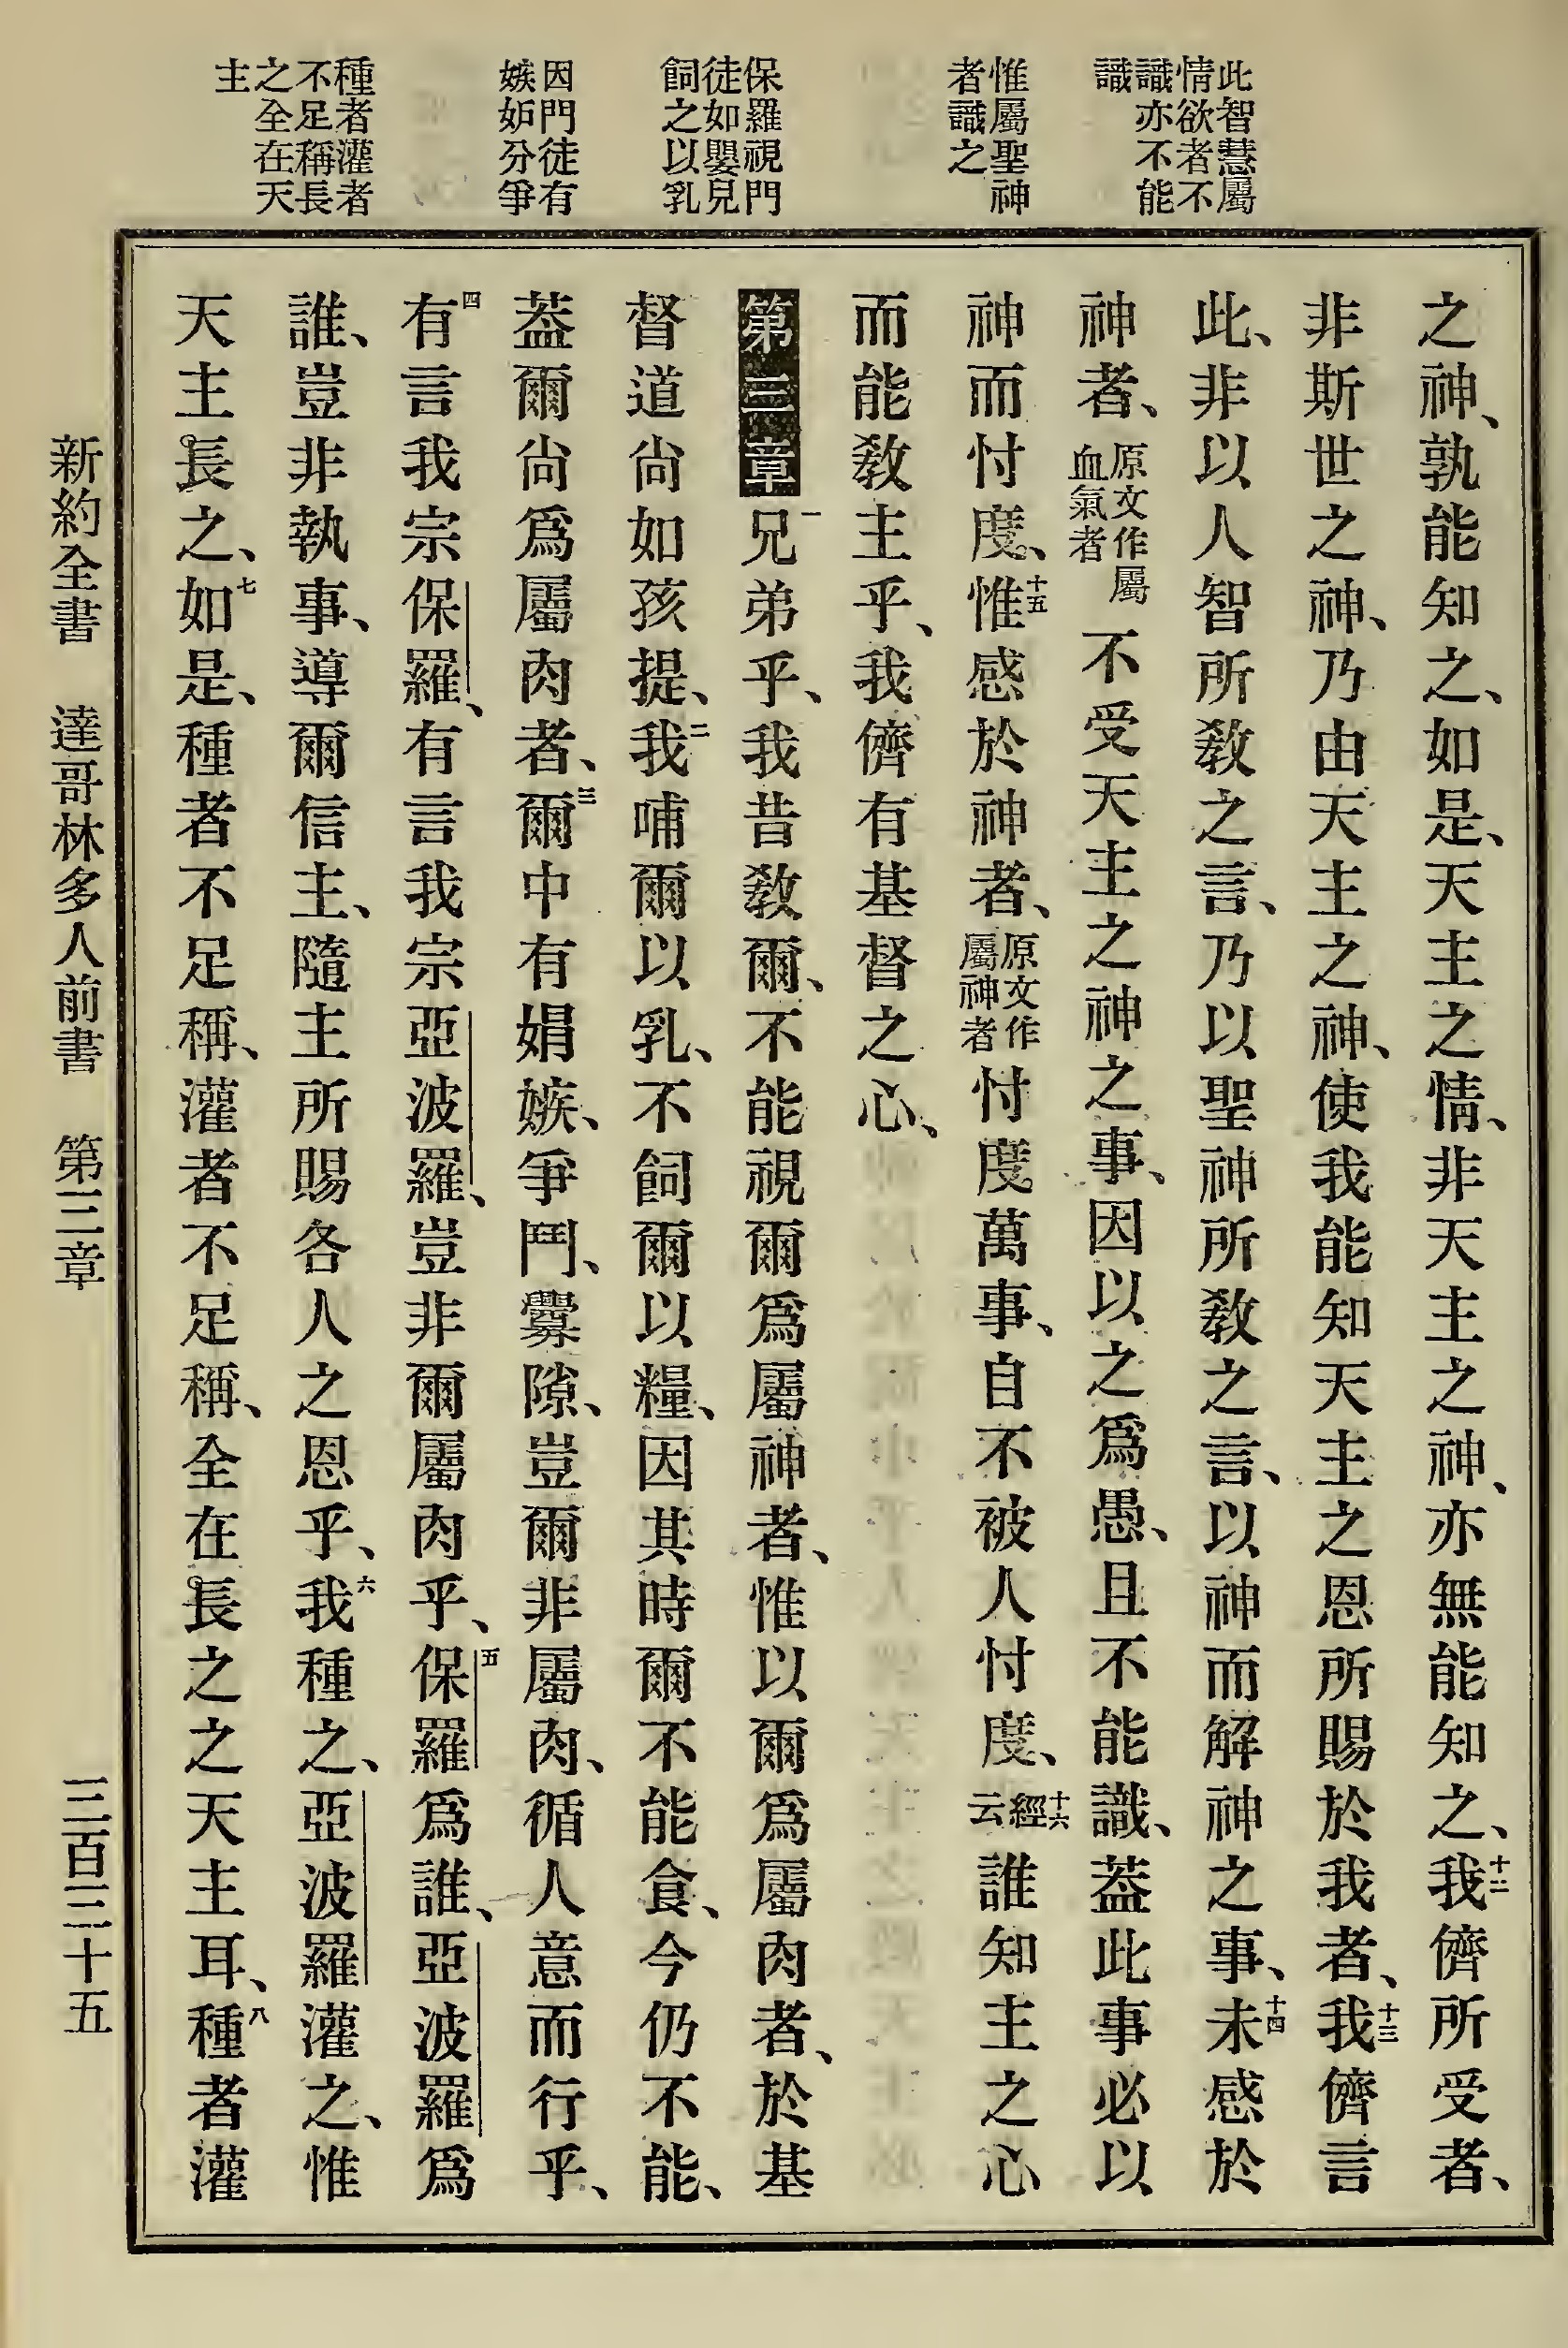 此智慧屬
情欲者不
識亦不能
識
惟屬聖神
者識之
保羅視門
徒如嬰兒
飼之以乳
因門徒有
嫉妒分爭
種者灌者
不足稱長
之全在天
主
之神、孰能知之、如是、天主之情、非天主之神、亦無能知之、十二我儕所受者、
非斯世之神、乃由天主之神、使我能知天主之恩所賜於我者、十三我儕言
此、非以人智所敎之言、乃以聖神所敎之言、以神而解神之事、十四未感於
神者、原文作屬血氣者不受天主之神之事、因以之爲愚、且不能識、蓋此事必以
神而忖度、十五惟感於神者、原文作屬神者忖度萬事、自不被人忖度、十六經云誰知主之心
而能敎主乎、我儕有基督之心、
第三章一兄弟乎、我昔敎爾、不能視爾爲屬神者、惟以爾爲屬肉者、於基
督道尙如孩提、二我哺爾以乳、不飼爾以糧、因其時爾不能食、今仍不能、
蓋爾尙爲屬肉者、三爾中有娟嫉、爭鬥、釁隙、豈爾非屬肉、循人意而行乎、
四有言我宗保羅、有言我宗亞波羅、豈非爾屬肉乎、五保羅爲誰、亞波羅爲
誰、豈非執事、導爾信主、隨主所賜各人之恩乎、六我種之、亞波羅灌之、惟
天主長之、七如是、種者不足稱、灌者不足稱、全在長之之天主耳、八種者灌
新約全書 達哥林多人前書 第三章 三百三十五